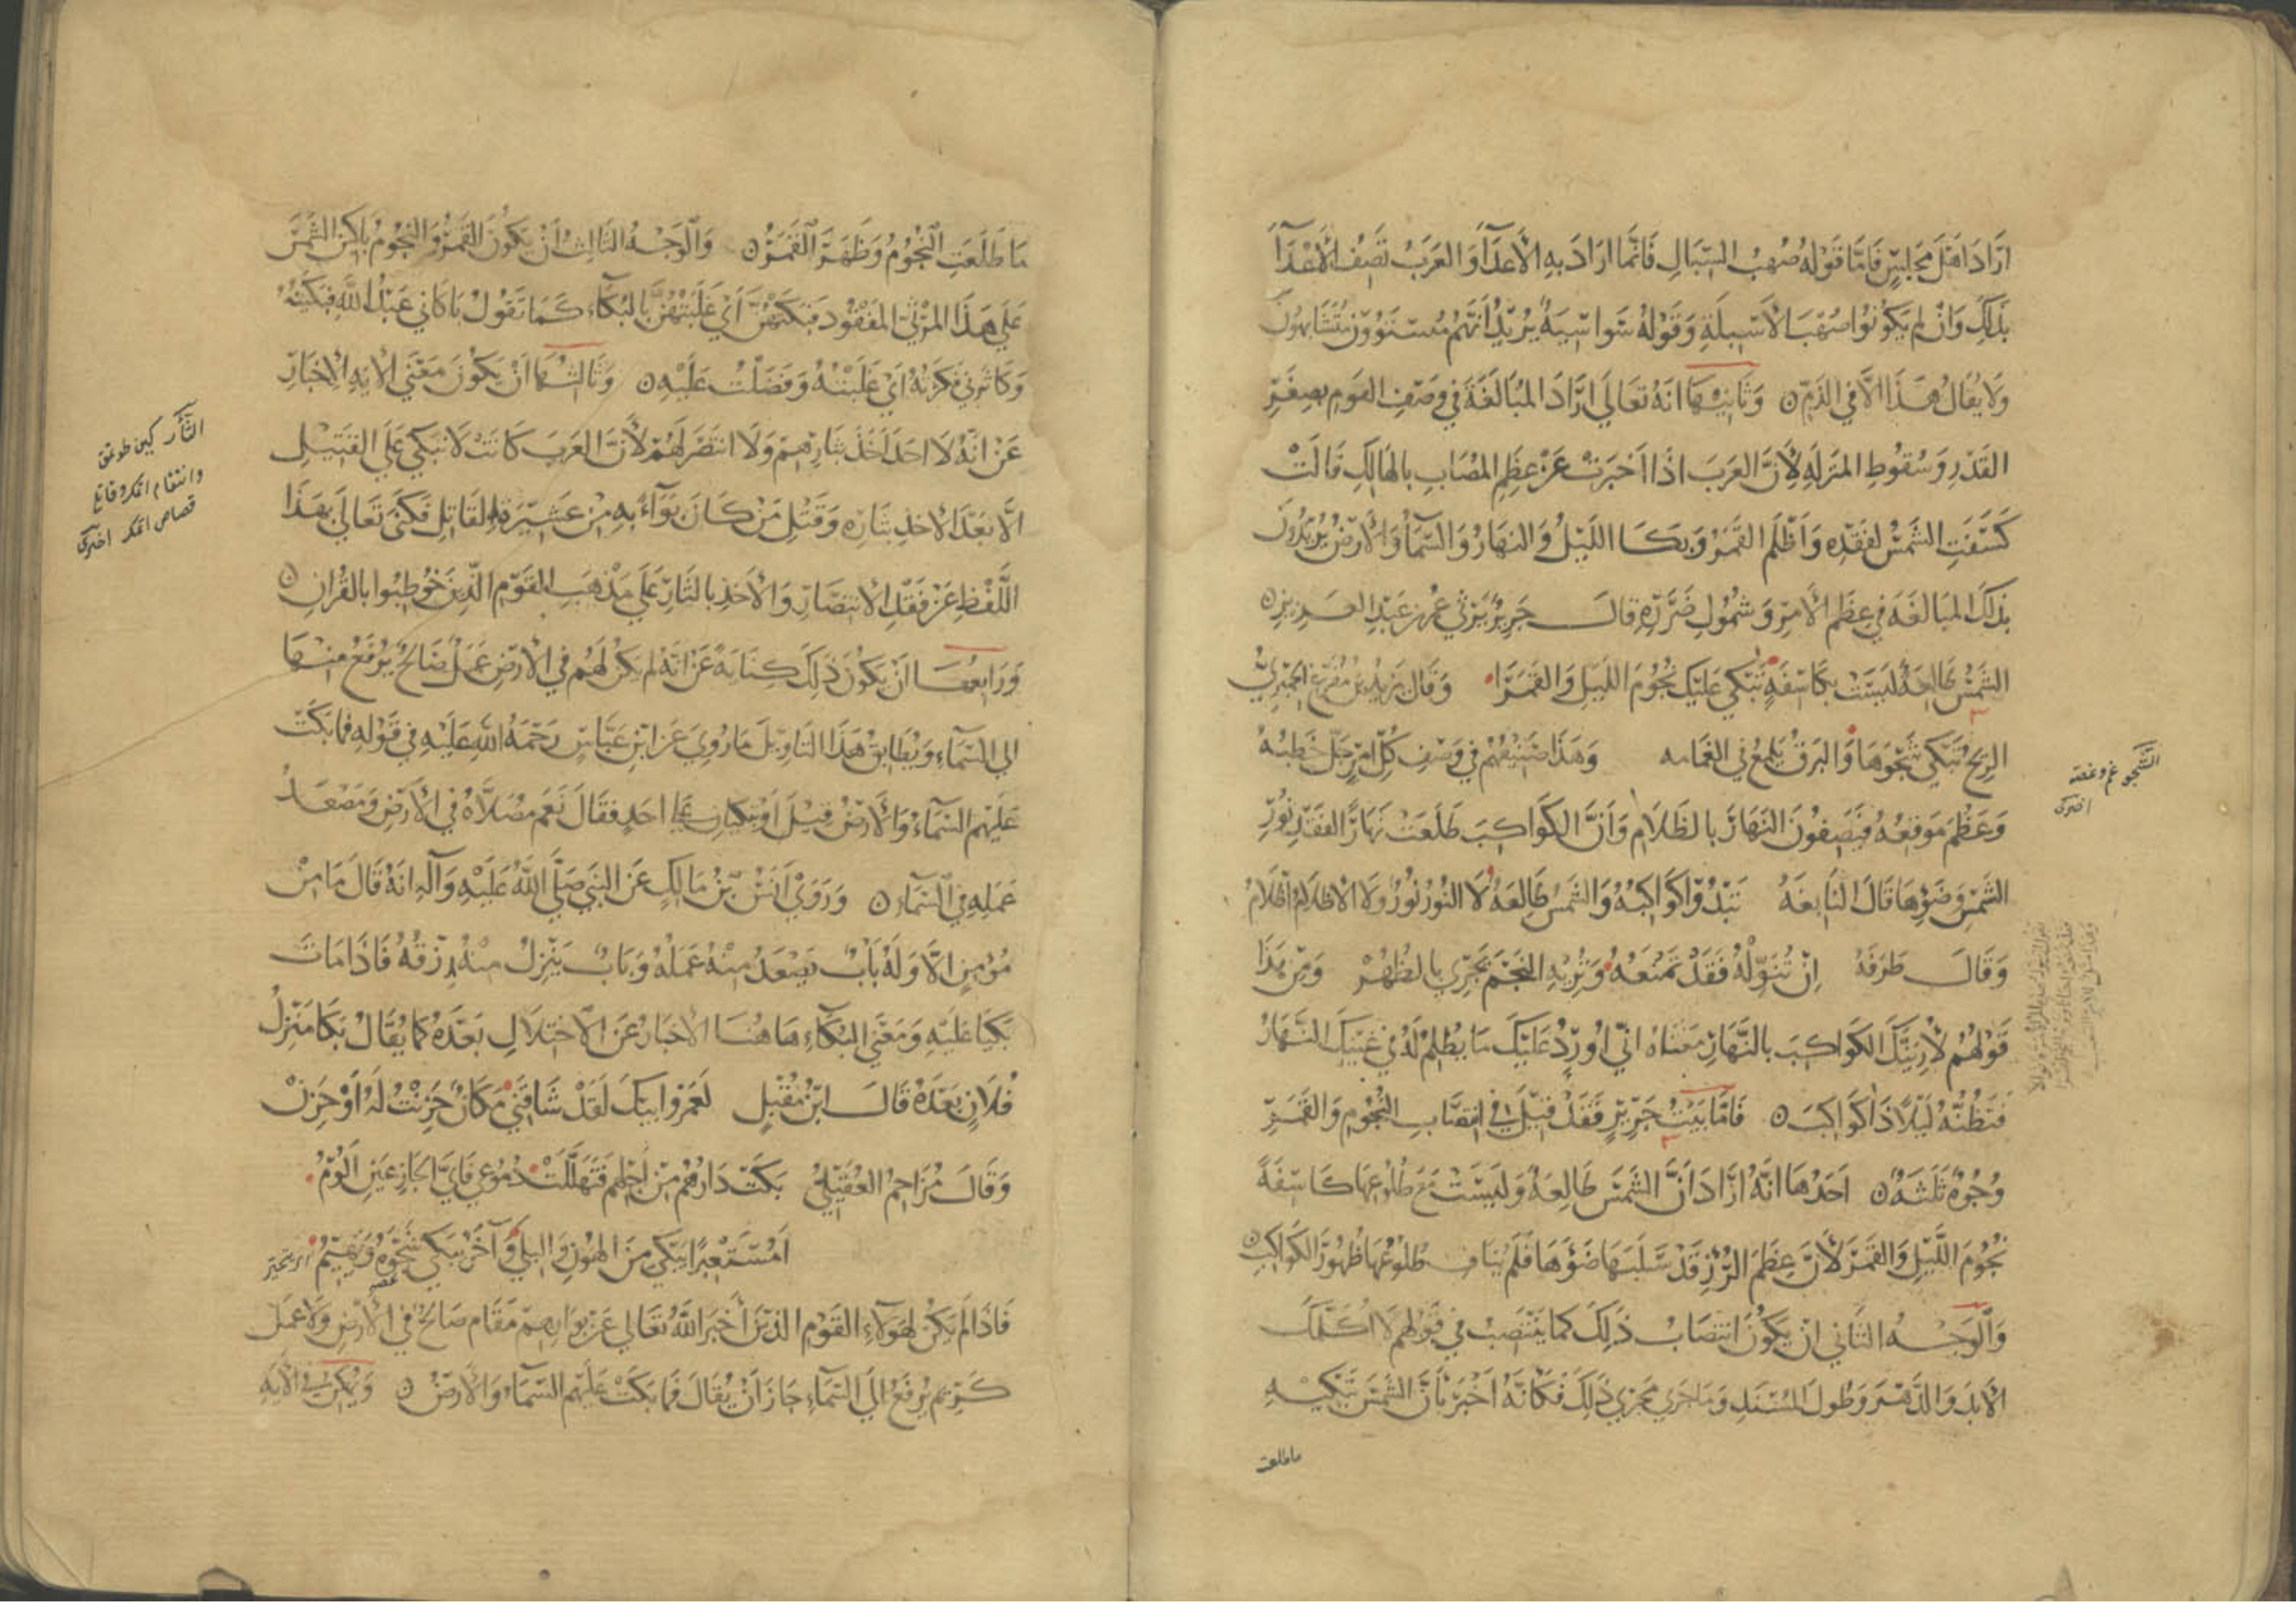 اراد اهل مجلس فاما قوله صهب السبال فانما اراد به الاعداء والعرب تصف الاعداء
بذلك وان لم يكونوا صهب الاسبلة وقوله سواسية يريد انهم مستوون متشابهون
ولا يقال هذا الا في الذم ۞ وثانيها انه تعالى اراد المبالغة في وصف القوم بصغر
القدر وسقوط المنزلة لان العرب اذا اخبرت عن عظم المصاب بالهالك قالت
كسفت الشمس لفقده واظلم القمر وبكا الليل والنهار والسماء والارض يريدون
بذلك المبالغة في عظم الامر وشمول ضرره قال جرير يرثي عمر بن عبد العزيز ۞
الشمس طالعة ليست بكاسفة تبكي عليك نجوم الليل والقمرا وقال يزيد بن مفرغ الحميري
الريح تبكي شجوها والبرق يلمع في الغمامه وهذا صنيعهم في وصف كل امر جل خطبه
وعظم موقعه فيصفون النهار بالظلام وان الكواكب طلعت نهارا لفقد نور
الشمس وضوئها قال النابغة تبدوا كواكبه والشمس طالعة لا النور نور ولا الاظلام اظلام
وقال طرفة ان تنوله فقد تمنعه وتريه النجم يجري بالظهر ومن هذا
قولهم لاريتك الكواكب بالنهار معناه اني اورد عليك ما يظلم له في عينيك النهار
فتظنه ليلا ذا كواكب ۞ فاما بيت جرير فقد قيل في انتصاب النجوم والقمر
وجوه ثلثة ۞ احدها انه اراد ان الشمس طالعة وليست مع طلوعها كاسفة
نجوم الليل والقمر لان عظم الرزء قد سلبها ضوءها فلم يناف طلوعها ظهور الكواكب ۞
والوجه الثاني ان يكون انتصاب ذلك كما ينتصب في قولهم لا اكلمك
الابد والدهر وطول المسند وما جرى مجرى ذلك فكانه اخبر بان الشمس تبكيه
ما طلعت
الشجو غم وغصه
اخترى
ما طلعت النجوم وظهر القمر ۞ والوجه الثالث ان يكون القمر والنجوم باكين الشمس
على هذا المرثي المفقود فبكتهن اي غلبتهن بالبكاء كما تقول باكاني عبد الله فبكيته
وكاثرني فكثرته اي غلبته وفضلت عليه ۞ وثالثها ان يكون معنى الاية الاخبار
عن انه لا احد اخذ بثارهم ولا انتصر لهم لان العرب كانت لا تبكي على القتيل
الا بعد الاخذ بثاره وقتل من كان بواء به من عشيرة القاتل فكنى تعالى بهذا
اللفظ عن فقد الانتصار والاخذ بالثار على مذهب القوم الذين خوطبوا بالقران ۞
ورابعها ان يكون ذلك كناية عن انه لم يكن لهم في الارض عمل صالح يرفع منها
الى السماء ويطابق هذا التاويل ما روي عن ابن عباس رحمة الله عليه في قوله فما بكت
عليهم السماء والارض قيل او تبكيان على احد فقال نعم مصلاه في الارض ومصعد
عمله في السماء ۞ وروي انس بن مالك عن النبي صلى الله عليه وآله انه قال ما من
مؤمن الا وله باب يصعد منه عمله وباب ينزل منه رزقه فاذا مات
بكيا عليه ومعنى البكاء هاهنا الاخبار عن الاختلال بعده كما يقال بكا منزل
فلان بعده قال ابن مقبل لعمر ابيك لقد شاقني مكان حزنت له او حزن
وقال مزاحم العقيلي بكت دارهم من اجلهم فتهللت دموعي فاي الجازعين الوم
امستعبرا يبكي من الهون والبلى وآخر يبكي شجوه ويهيم
فاذا لم يكن لهولاء القوم الذين اخبر الله تعالى عن بوارهم مقام صالح في الارض ولا عمل
كريم يرفع الى السماء جاز ان يقال فما بكت عليهم السماء والارض ۞ ويمكن في الاية
الثار كين طوتمق
وانتقام المك وقانغ
قصاص المك اخترى